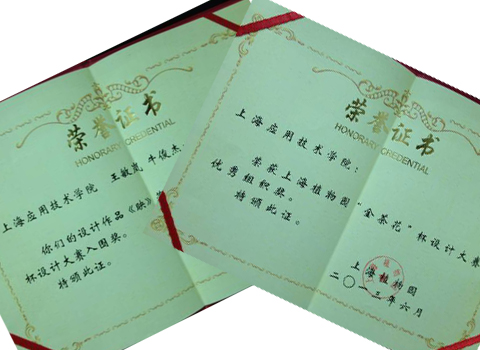 荣誉证书
HONORARY CREDENTIAL
上海应用技术学院 王敏岚 牛俊杰
你们的设计作品《
杯设计大赛入围奖。
特颁此证。
荣誉证书
HONORARY CREDENTIAL
上海应用技术学院：
荣获上海植物园“金茶花”杯设计大赛
优秀组织奖。
特颁此证。
上海植物园
二〇一三年六月